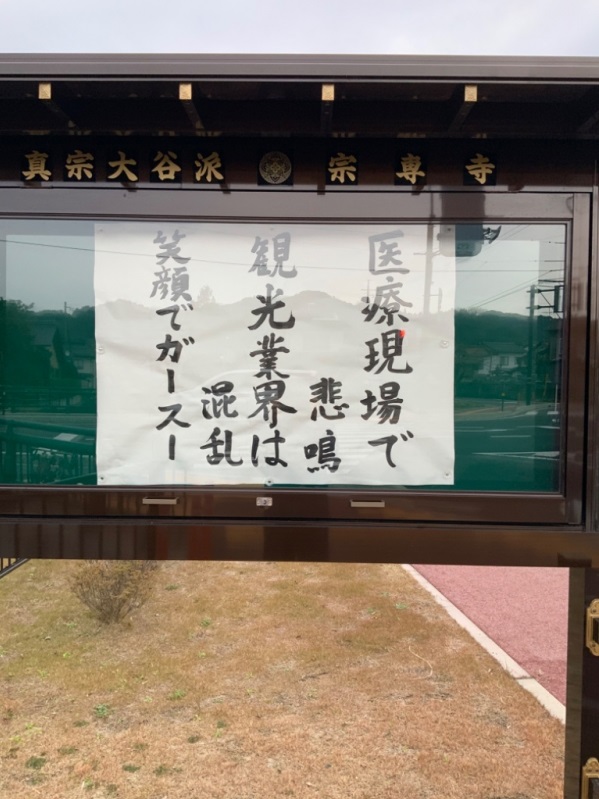 真宗大谷派 宗専寺
医療現場で
悲鳴
観光業界は
混乱
笑顔でガースー